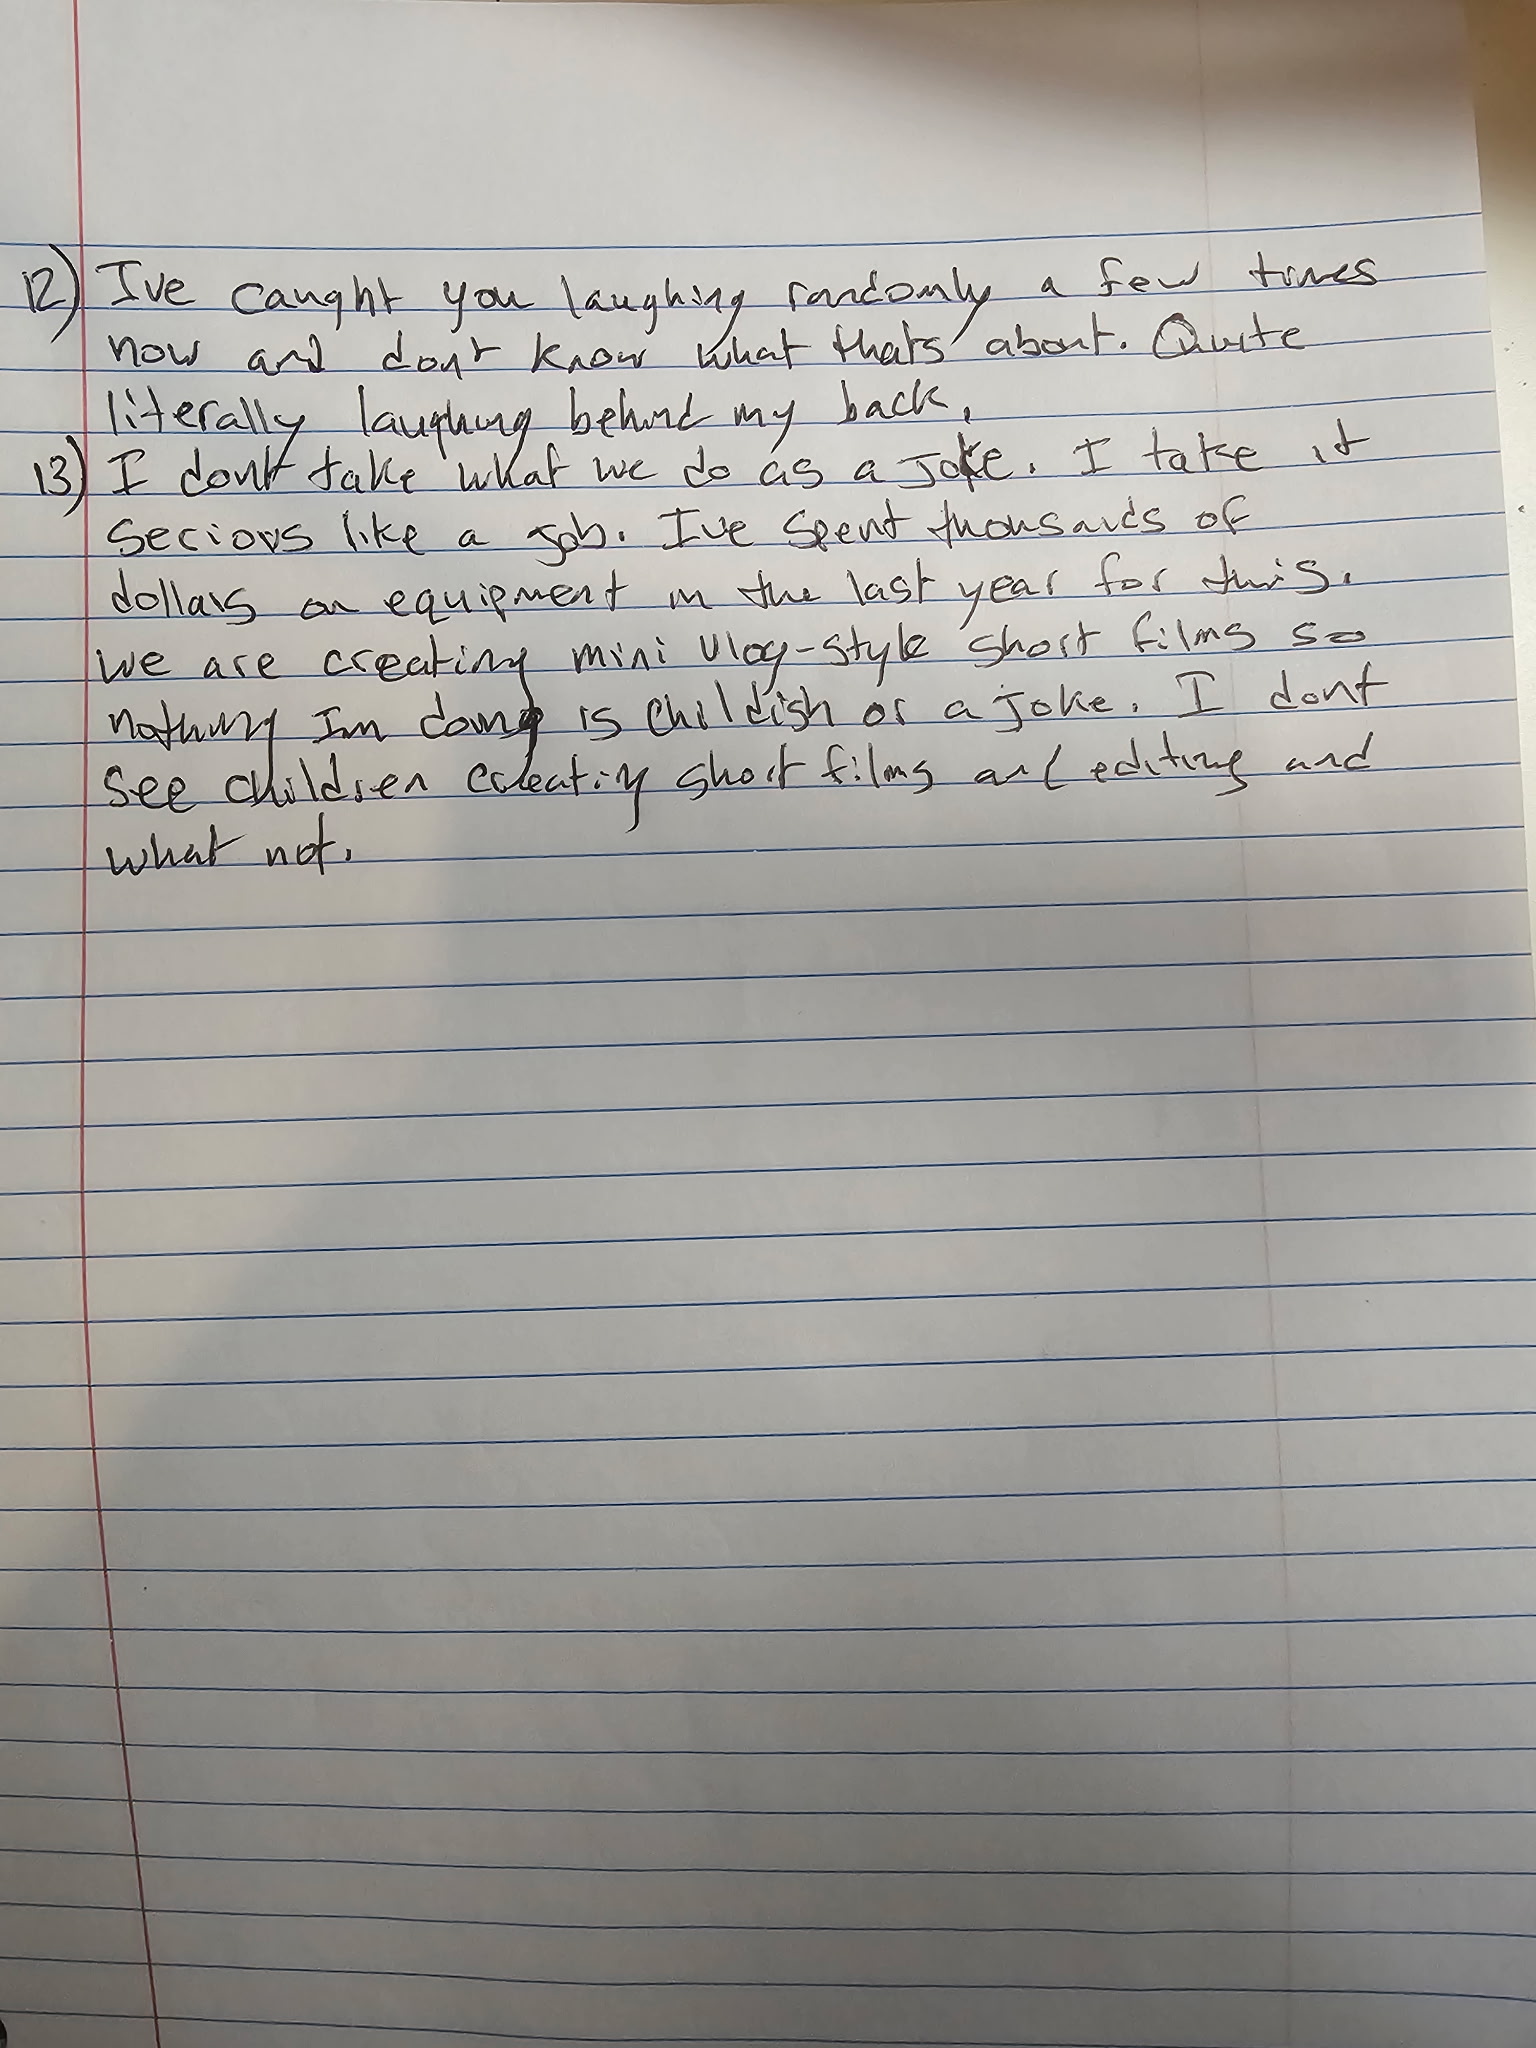 12) Ive caught you laughing randomly a few times
now and don't know what thats about. Quite
literally laughing behind my back,
13) I don't take what we do as a joke. I take it
serious like a job. Ive spent thousands of
dollars on equipment in the last year for this.
we are creating mini vlog-style short films so
nothing Im doing is childish or a joke. I dont
see children creating short films and editing and
what not.